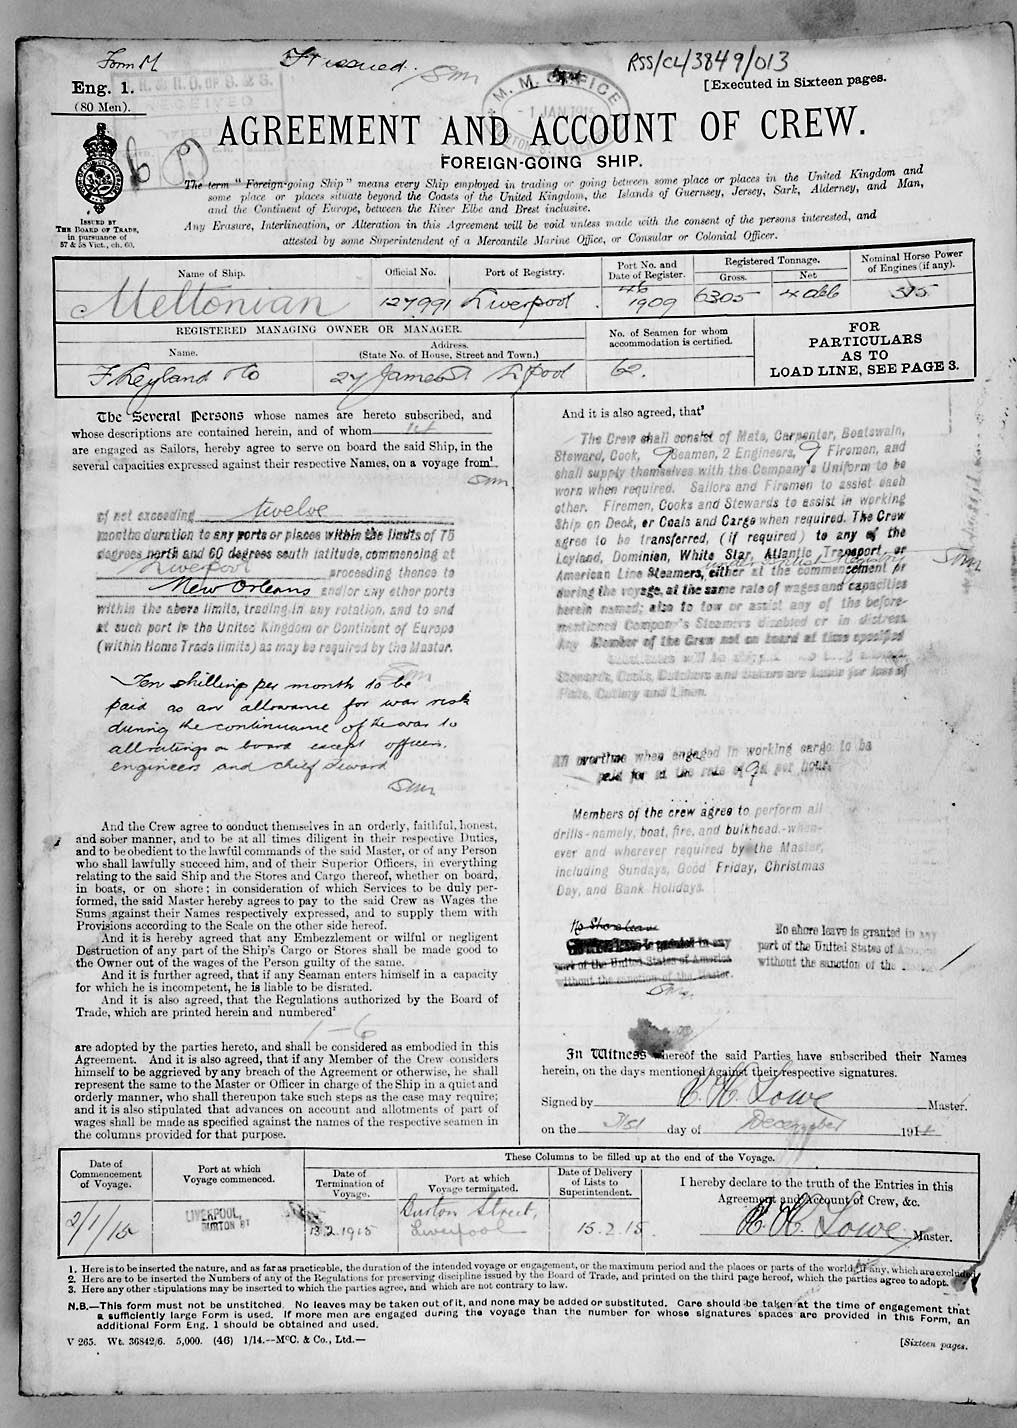 Form M
RSS/CL/3849/013
Eng. 1.
(80 Men).
[Executed in Sixteen pages.
M. M. OFFICE
1 JAN 1915
AGREEMENT AND ACCOUNT OF CREW.
FOREIGN-GOING SHIP.
ISSUED BY
THE BOARD OF TRADE,
in pursuance of
57 & 58 Vict., ch. 60.
The term "Foreign-going Ship" means every Ship employed in trading or going between some place or places in the United Kingdom and
some place or places situate beyond the Coasts of the United Kingdom, the Islands of Guernsey, Jersey, Sark, Alderney, and Man,
and the Continent of Europe, between the River Elbe and Brest inclusive.
Any Erasure, Interlineation, or Alteration in this Agreement will be void unless made with the consent of the persons interested, and
attested by some Superintendent of a Mercantile Marine Office, or Consular or Colonial Officer.
Name of Ship. Official No. Port of Registry. Port No. and Date of Register. Registered Tonnage. Gross. Net Nominal Horse Power of Engines (if any).
Meltonian 127,991 Liverpool 46 1909 6305 4066 515
REGISTERED MANAGING OWNER OR MANAGER.
Name. Address. (State No. of House, Street and Town.)
No. of Seamen for whom accommodation is certified.
FOR
PARTICULARS
AS TO
LOAD LINE, SEE PAGE 3.
F Leyland & Co 27 James St L'pool 62.
The Several Persons whose names are hereto subscribed, and
whose descriptions are contained herein, and of whom
are engaged as Sailors, hereby agree to serve on board the said Ship, in the
several capacities expressed against their respective Names, on a voyage from¹
of not exceeding twelve
months duration to any ports or places within the limits of 75
degrees north and 60 degrees south latitude, commencing at
Liverpool proceeding thence to
New Orleans and/or any other ports
within the above limits, trading in any rotation, and to end
at such port in the United Kingdom or Continent of Europe
(within Home Trade limits) as may be required by the Master.
Ten shillings per month to be
paid as an allowance for war risk
during the continuance of the war to
all ratings on board except officers,
engineers and chief steward
And the Crew agree to conduct themselves in an orderly, faithful, honest,
and sober manner, and to be at all times diligent in their respective Duties,
and to be obedient to the lawful commands of the said Master, or of any Person
who shall lawfully succeed him, and of their Superior Officers, in everything
relating to the said Ship and the Stores and Cargo thereof, whether on board,
in boats, or on shore; in consideration of which Services to be duly per-
formed, the said Master hereby agrees to pay to the said Crew as Wages the
Sums against their Names respectively expressed, and to supply them with
Provisions according to the Scale on the other side hereof.
And it is hereby agreed that any Embezzlement or wilful or negligent
Destruction of any part of the Ship's Cargo or Stores shall be made good to
the Owner out of the wages of the Person guilty of the same.
And it is further agreed, that if any Seaman enters himself in a capacity
for which he is incompetent, he is liable to be disrated.
And it is also agreed, that the Regulations authorized by the Board of
Trade, which are printed herein and numbered²
1-6
are adopted by the parties hereto, and shall be considered as embodied in this
Agreement. And it is also agreed, that if any Member of the Crew considers
himself to be aggrieved by any breach of the Agreement or otherwise, he shall
represent the same to the Master or Officer in charge of the Ship in a quiet and
orderly manner, who shall thereupon take such steps as the case may require;
and it is also stipulated that advances on account and allotments of part of
wages shall be made as specified against the names of the respective seamen in
the columns provided for that purpose.
And it is also agreed, that³
The Crew shall consist of Mate, Carpenter, Boatswain,
Steward, Cook, 9 Seamen, 2 Engineers, 9 Firemen, and
shall supply themselves with the Company's Uniform to be
worn when required. Sailors and Firemen to assist each
other. Firemen, Cooks and Stewards to assist in working
Ship on Deck, or Coals and Cargo when required. The Crew
agree to be transferred, (if required) to any of the
Leyland, Dominion, White Star, Atlantic Transport, or
under British Registry
American Line Steamers, either at the commencement or
during the voyage, at the same rate of wages and capacities
herein named; also to tow or assist any of the before-
mentioned Company's Steamers disabled or in distress.
Any Member of the Crew not on board at time specified
Stewards, Cooks, Butchers and Bakers are liable for loss of
Plate, Cutlery and Linen.
All overtime when engaged in working cargo to be
paid for at the rate of 9d per hour.
Members of the crew agree to perform all
drills-namely, boat, fire, and bulkhead-when-
ever and wherever required by the Master,
including Sundays, Good Friday, Christmas
Day, and Bank Holidays.
No Shore leave
leave is granted in any
part of the United States of America
without the sanction of the Master.
No shore leave is granted in any
part of the United States of America
without the sanction of the
In Witness whereof the said Parties have subscribed their Names
herein, on the days mentioned against their respective signatures.
Signed by H. H. Lowe Master.
on the 31st day of December 1914
These Columns to be filled up at the end of the Voyage.
Date of Commencement of Voyage. Port at which Voyage commenced. Date of Termination of Voyage. Port at which Voyage terminated. Date of Delivery of Lists to Superintendent.
I hereby declare to the truth of the Entries in this
Agreement and Account of Crew, &c.
2/1/15 LIVERPOOL, BURTON ST 13.2.1915 Burton Street, Liverpool 15.2.15.
H. H. Lowe Master.
1. Here is to be inserted the nature, and as far as practicable, the duration of the intended voyage or engagement, or the maximum period and the places or parts of the world, if any, which are excluded
2. Here are to be inserted the Numbers of any of the Regulations for preserving discipline issued by the Board of Trade, and printed on the third page hereof, which the parties agree to adopt.
3. Here any other stipulations may be inserted to which the parties agree, and which are not contrary to law.
N.B.—This form must not be unstitched. No leaves may be taken out of it, and none may be added or substituted. Care should be taken at the time of engagement that
a sufficiently large Form is used. If more men are engaged during the voyage than the number for whose signatures spaces are provided in this Form, an
additional Form Eng. 1 should be obtained and used.
V 265. Wt. 36842/6. 5,000. (46) 1/14.—McC. & Co., Ltd.—
[Sixteen pages.